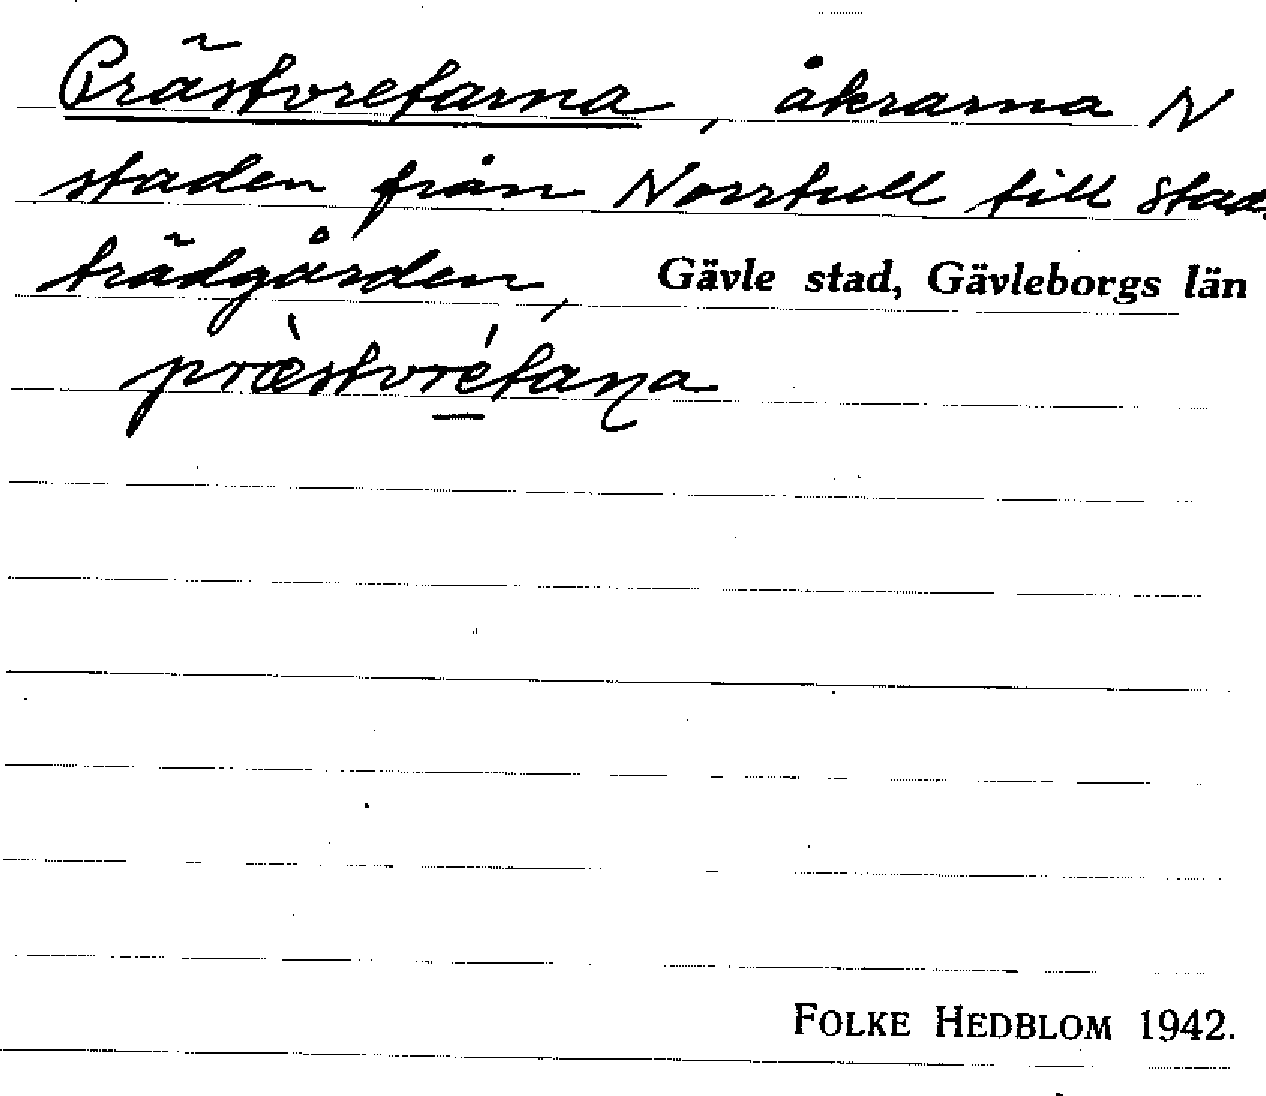 Prästvretarna, åkrarna N
staden från Norrtull till Stads
trädgården, Gävle stad, Gävleborgs län
præ̀stvrétaɳa
FOLKE HEDBLOM 1942.